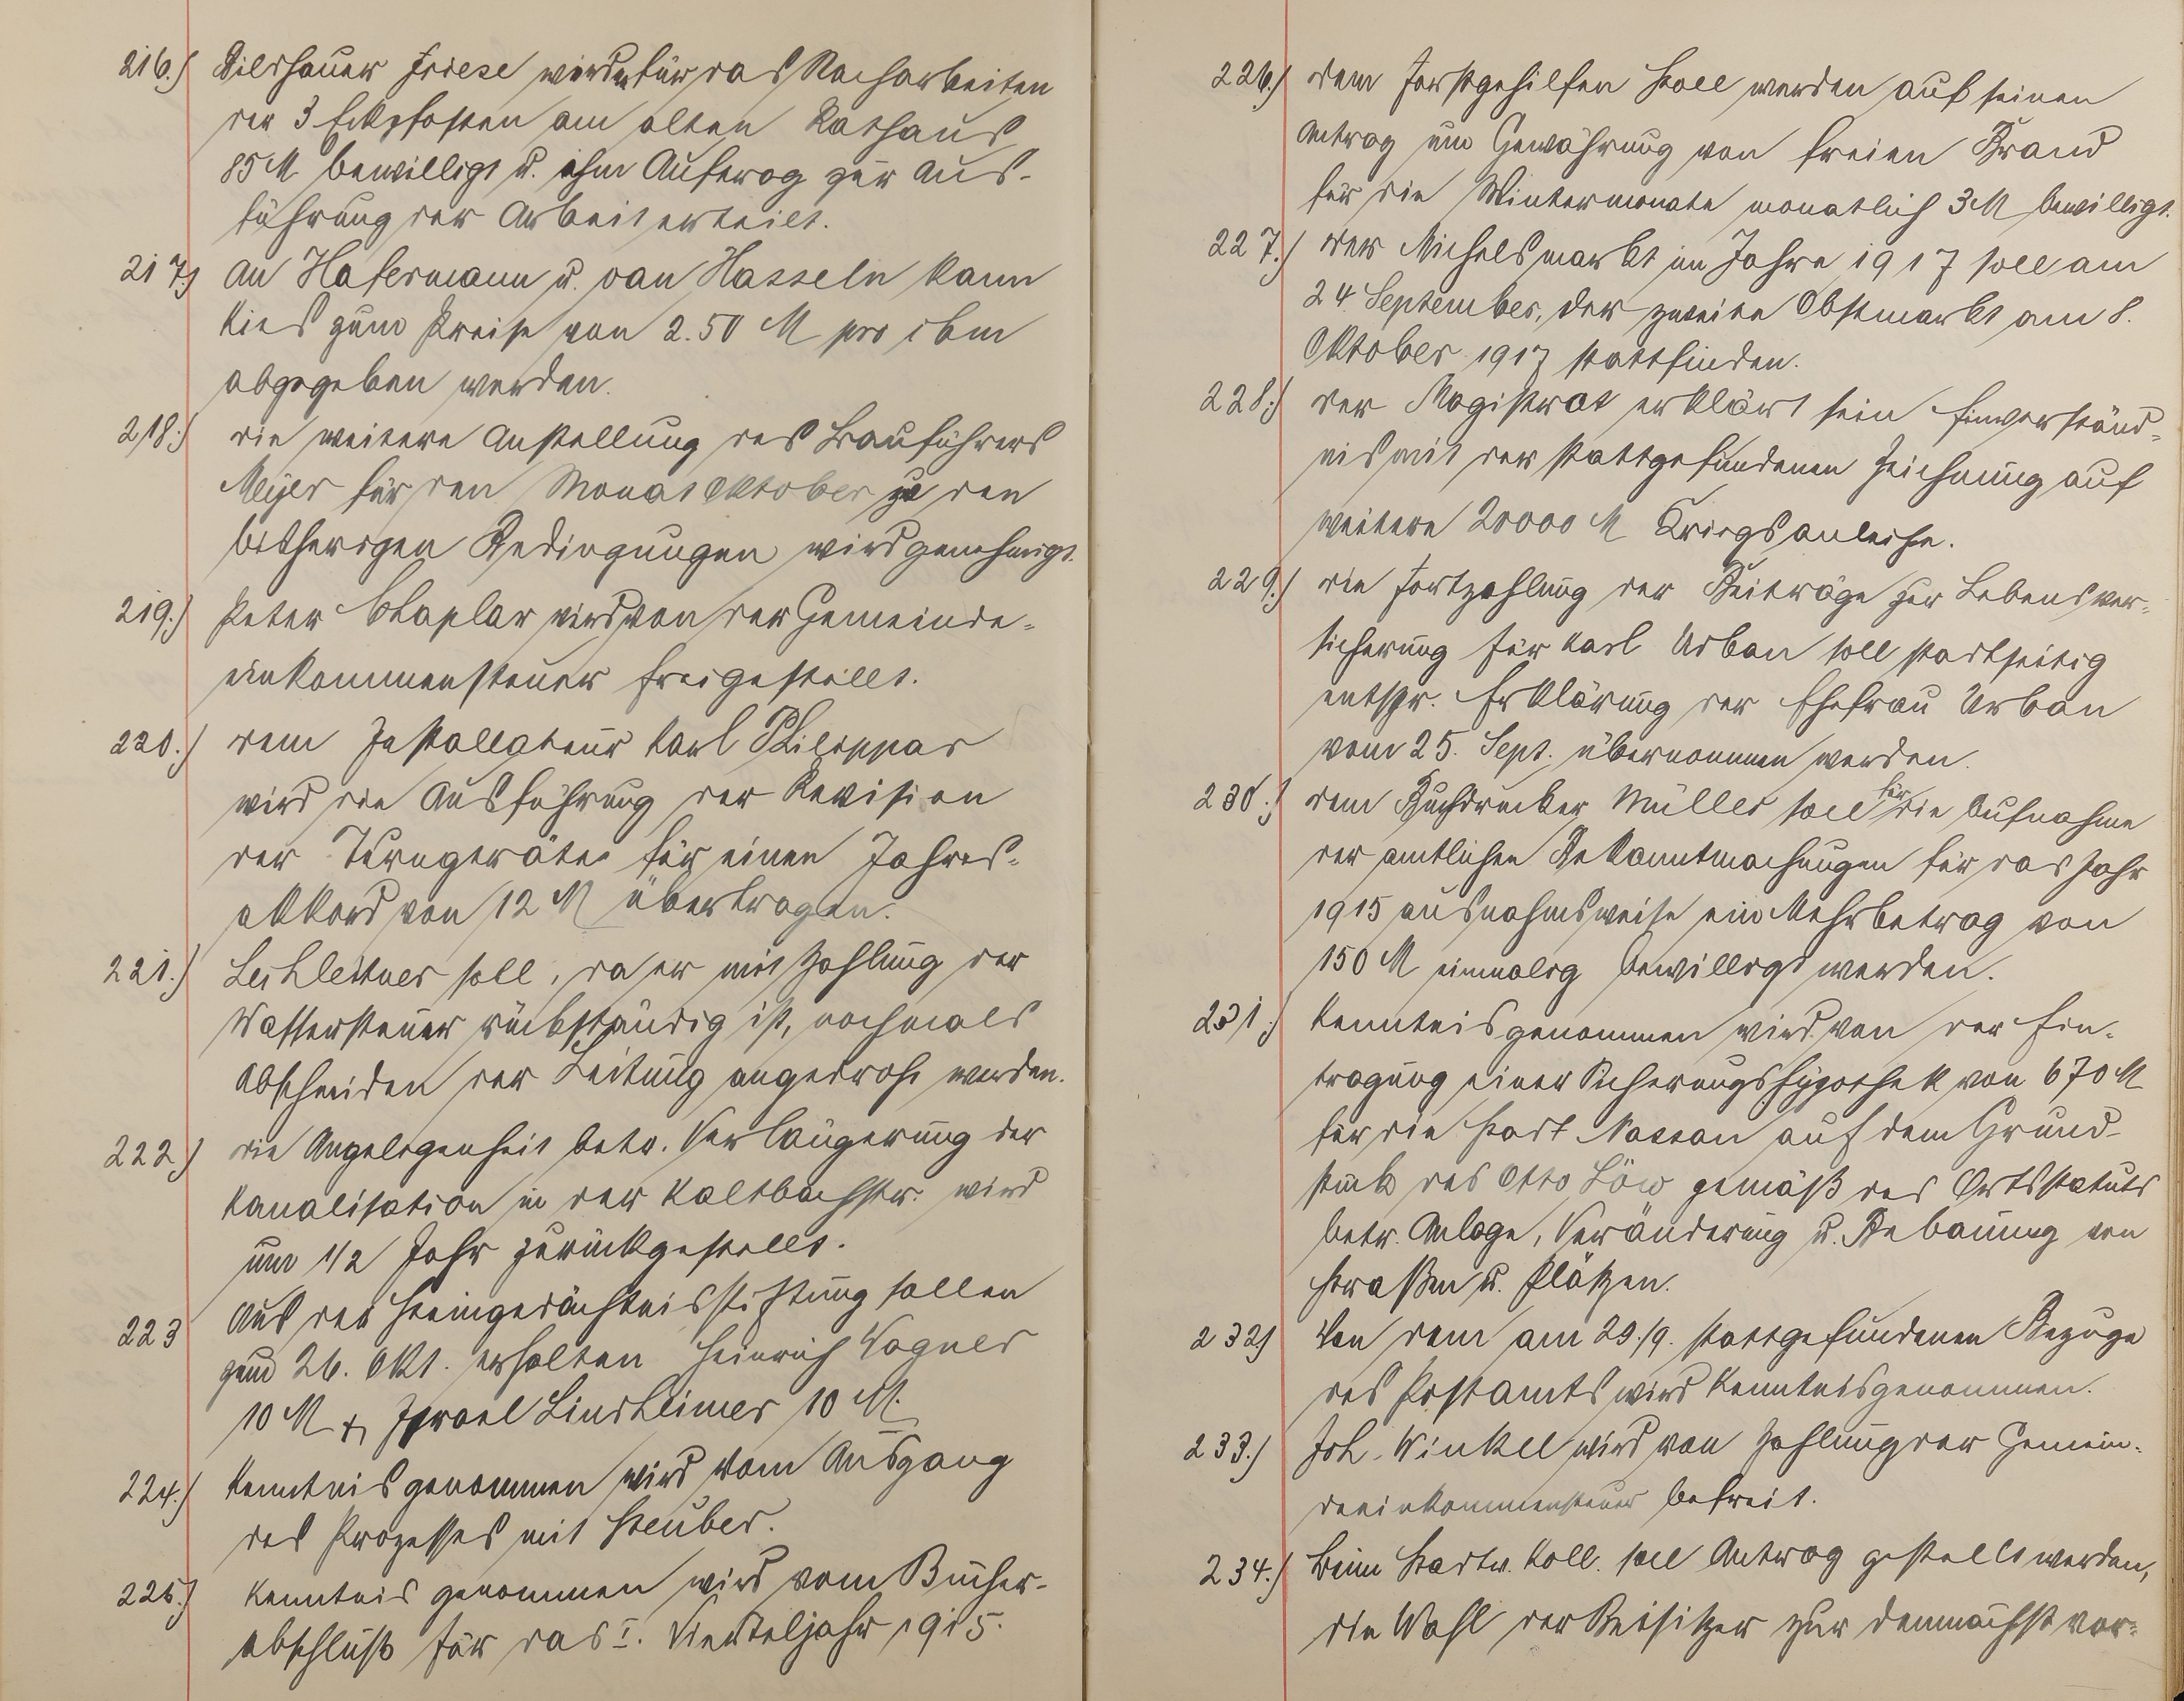 216.) Bildhauer Friese werden für das Nacharbeiten
der 3 Eckpfosten am alten Rathaus
85 M bewilligt u. ihm Auftrag zur Aus-
führung der Arbeit erteilt.
217.) An Hafermann u. van Hasseln kann
Kies zum Preise von 2.50 M pro cbm
abgegeben werden.
218.) die weitere Anstellung des Bauführers
Meyer für den Monat Oktober zu den
bisherigen Bedingungen wird genehmigt.
219.) Peter wird von der Gemeinde-
einkommensteuer freigestellt.
220.) dem Installateur Karl Philippar
wird die Ausführung der Revision
der Turngeräte für einen Jahres-
akkord von 12 M übertragen.
221.) Lechleitner soll, da er mit Zahlung der
Wassersteuer rückständig ist, nochmals
Abschneiden der Leitung angedroht werden.
222.) die Angelegenheit betr. Verlängerung der
Kanalisation in der Kaltbachstr. wird
um 1/2 Jahr zurückgestellt.
223 Aus der Steingedächtnisstiftung sollen
zum 26. Okt. erhalten Heinrich Wagner
10 M & Israel Lindheimer 10 M.
224.) Kenntnis genommen wird vom Ausgang
des Prozesses mit Steuber.
225.) Kenntnis genommen wird vom Bücher-
abschluß für das I. Vierteljahr 1915.
226.) dem Forstgehilfen Stoll werden auf seinen
Antrag um Gewährung von freien Brand
für die Wintermonate monatlich 3 M bewilligt.
227.) der Michelsmarkt im Jahre 1917 soll am
24. September, der zweite Obstmarkt am 8.
Oktober 1917 stattfinden.
228.) der Magistrat erklärt sein Einverständ-
nis mit der stattgefundenen Zeichnung auf
weitere 20000 M Kriegsanleihe.
229.) die Fortzahlung der Beiträge zur Lebensver-
sicherung für Karl Urban soll stadtseitig
entspr. Erklärung der Ehefrau Urban
vom 25. Sept. übernommen werden.
230.) dem Buchdrucker Müller soll für die Aufnahme
der amtlichen Bekanntmachungen für das Jahr
1915 ausnahmsweise ein Mehrbetrag von
150 M einmalig bewilligt werden.
231.) Kenntnis genommen wird von der Ein-
tragung einer Sicherungshypothek von 670 M
für die Stadt Nassau auf dem Grund-
stück des Otto Löw gemäß des Ortsstatuts
betr. Anlage, Veränderung u. Bebauung von
Straßen u. Plätzen.
232.) Von dem am 29./9. stattgefundenen Bezuge
des Postamts wird Kenntnis genommen.
233.) Joh. Winkel wird von Zahlung der Gemein-
deeinkommensteuer befreit.
234.) Beim Stadtv. Koll. soll Antrag gestellt werden,
die Wahl der Beisitzer zur demnächst vor-